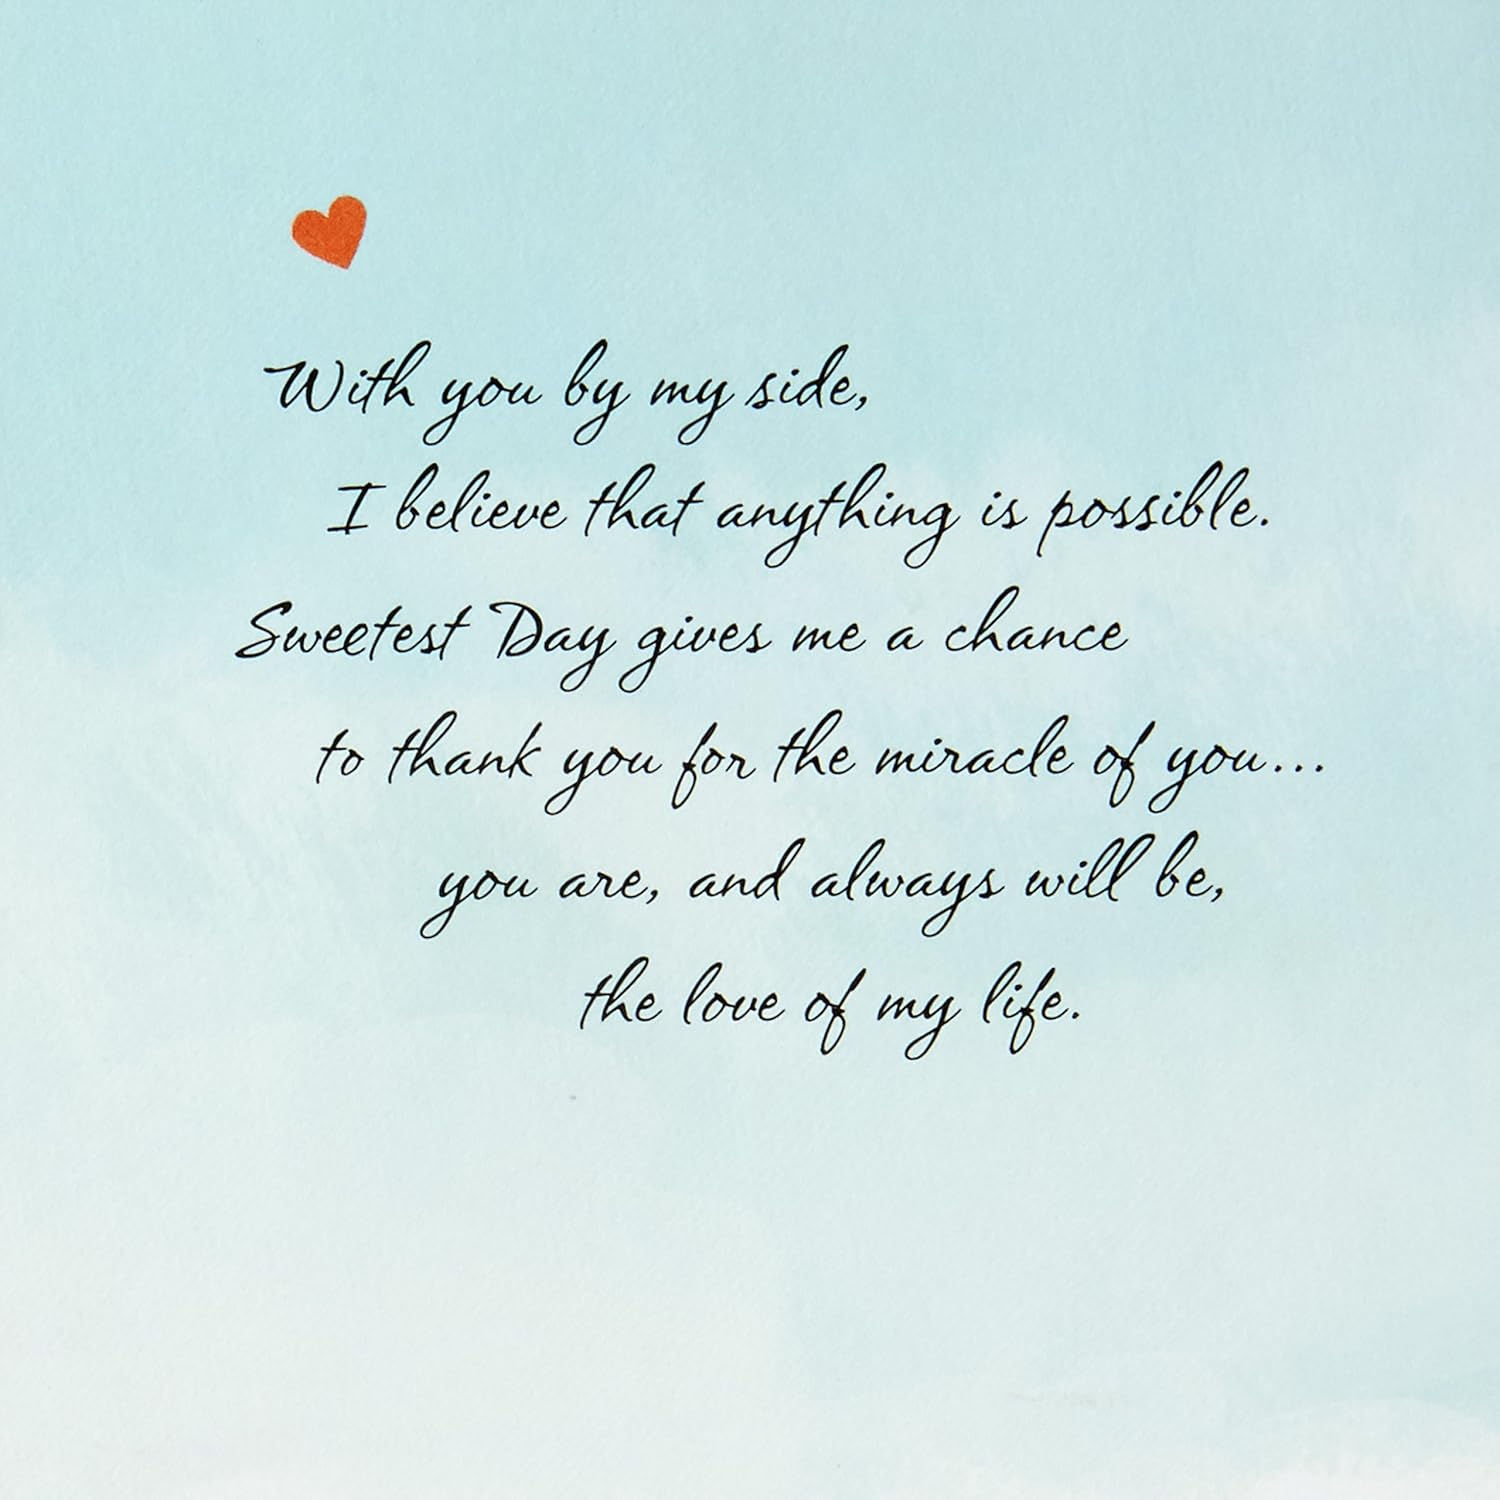 With you by my side,
I believe that anything is possible.
Sweetest Day gives me a chance
to thank you for the miracle of you...
you are, and always will be,
the love of my life.